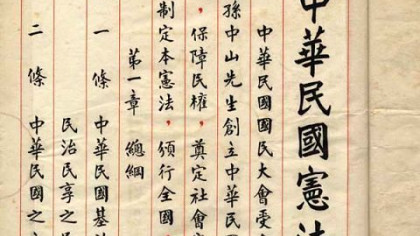 中華民國憲法
中華民國國民大會受
孫中山先生創立中華民國
，保障民權，奠定社會
制定本憲法，頒行全國
第一章 總綱
一條 中華民國基
民治民享之
二條 中華民國之